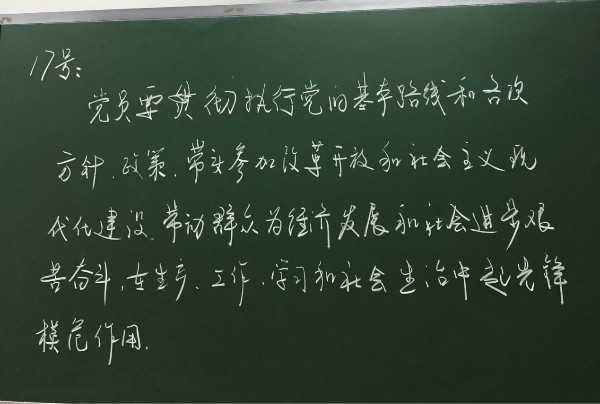 17号:
党员要贯彻执行党的基本路线和各次
方针、政策、带头参加改革开放和社会主义现
代化建设、带动群众为经济发展和社会进步艰
苦奋斗,在生产、工作、学习和社会生活中起先锋
模范作用.